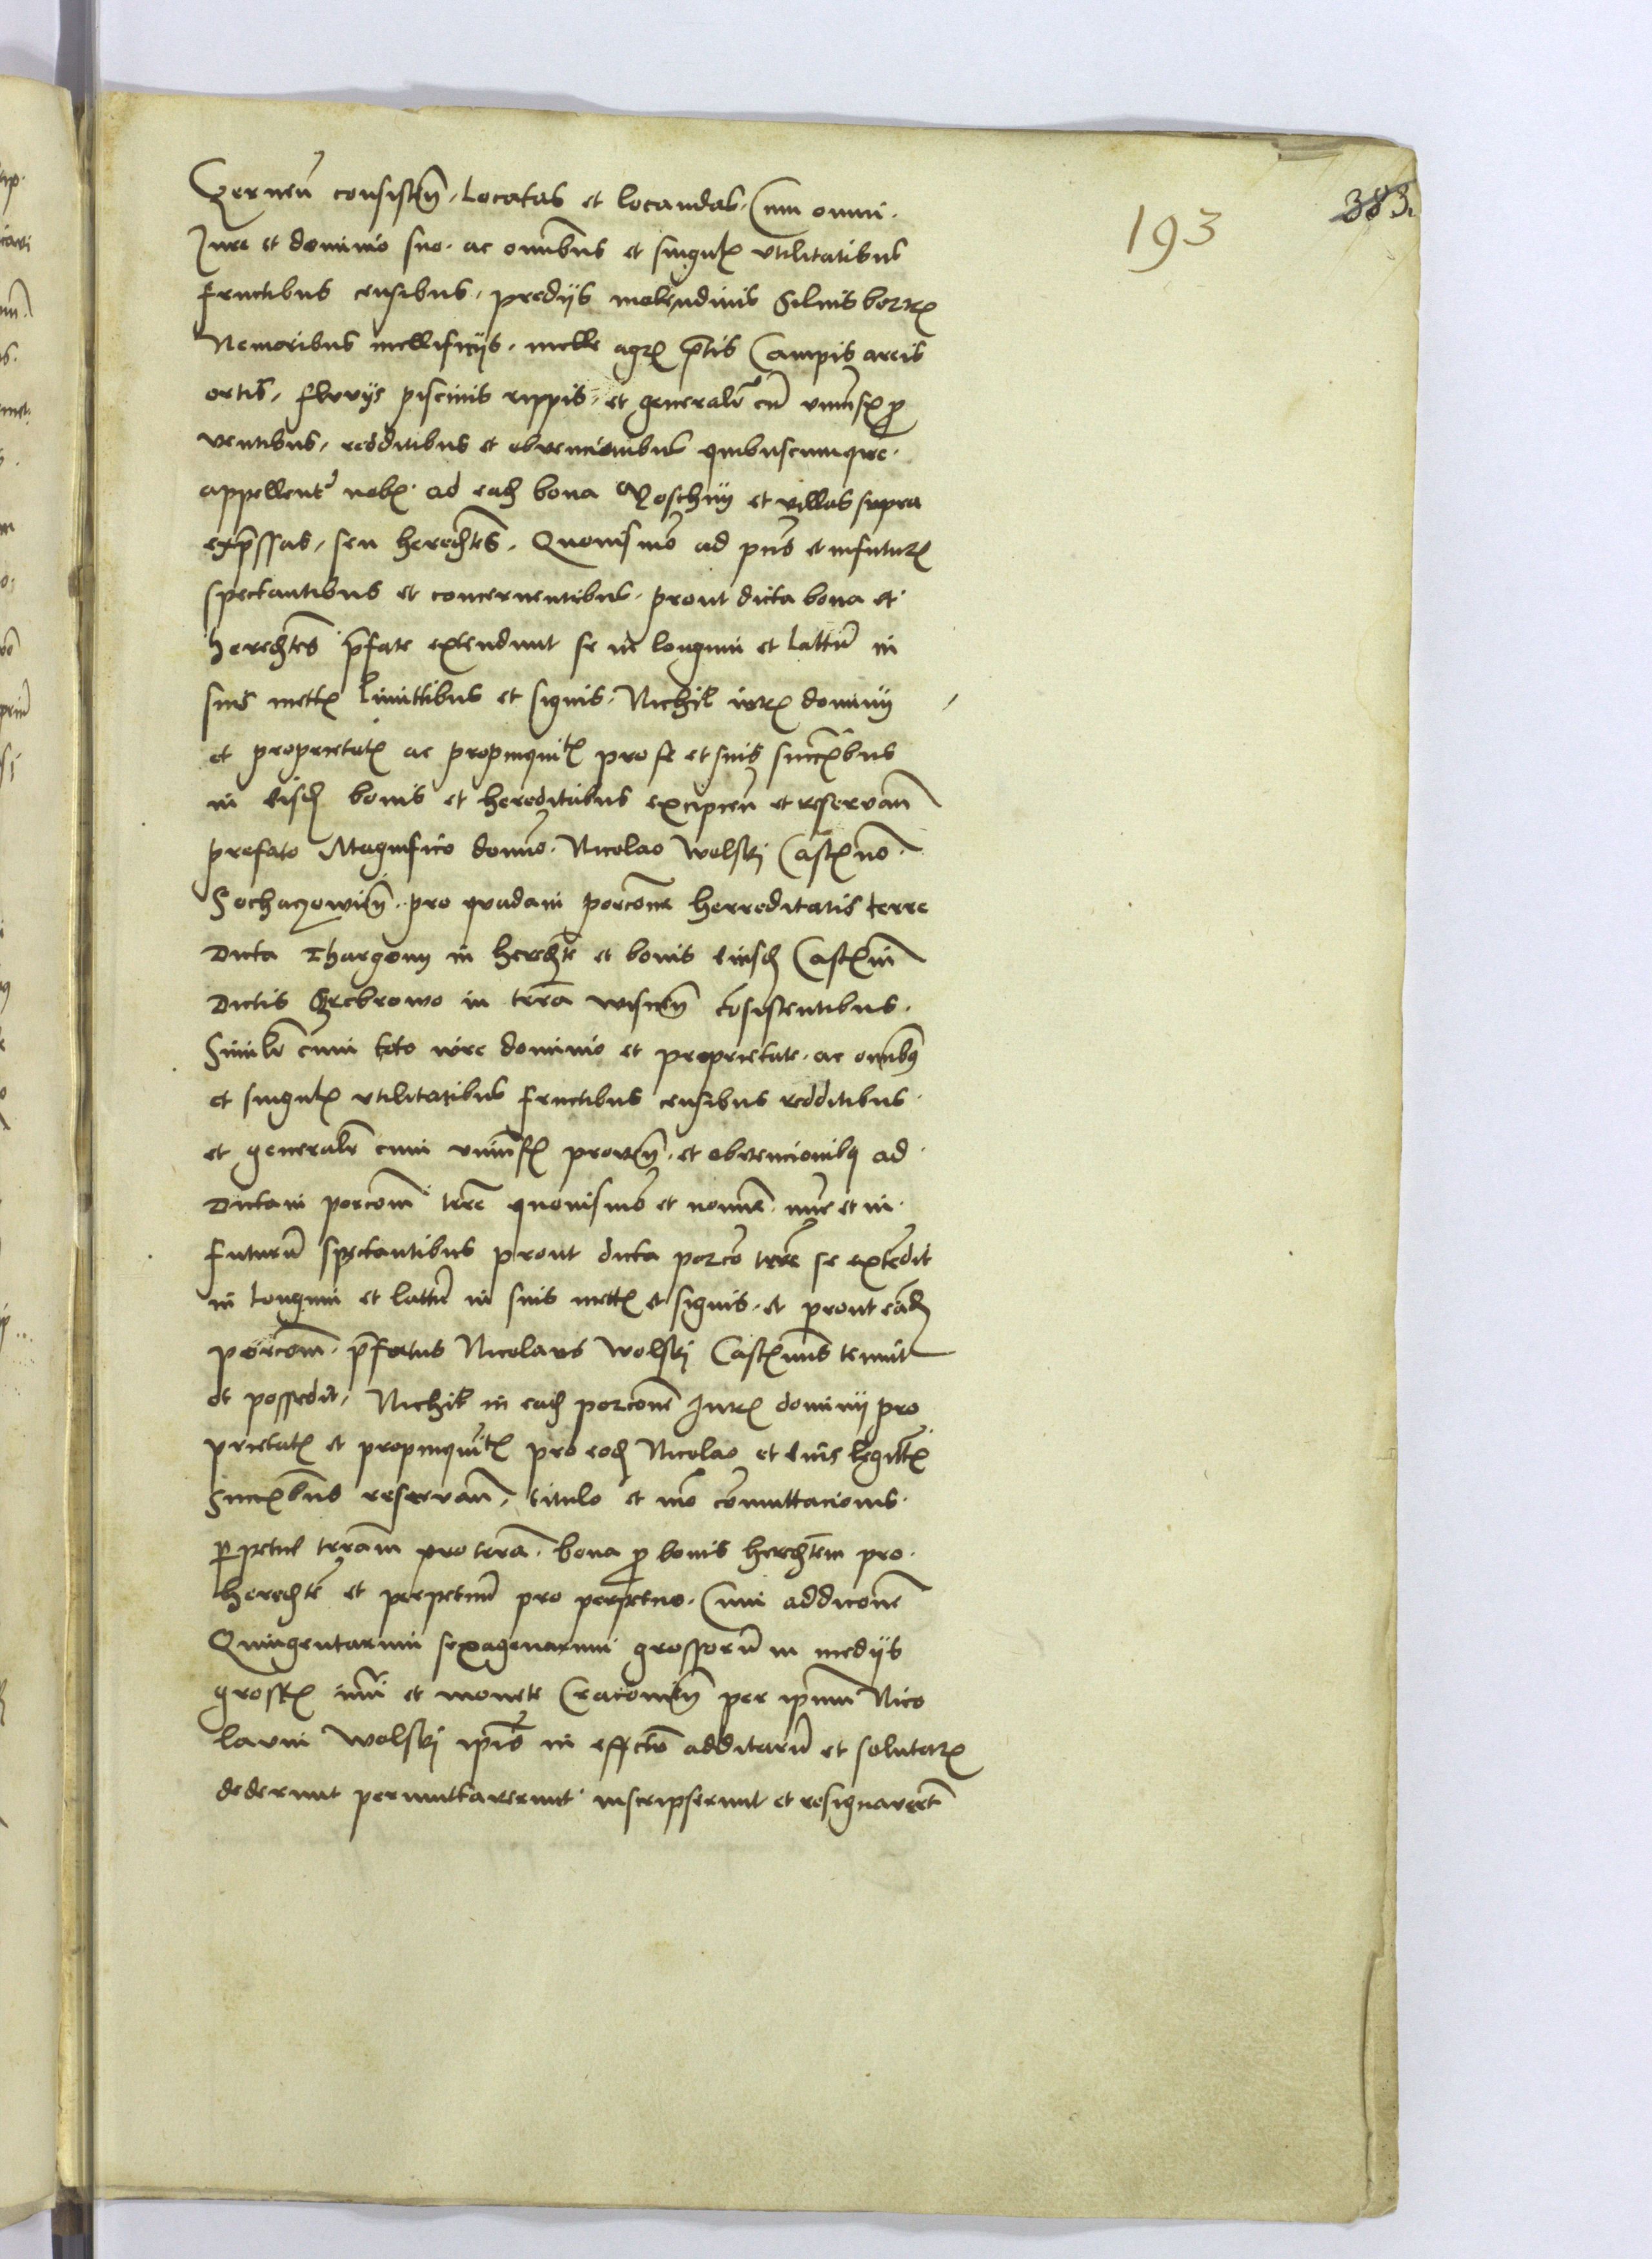 193
383
Czerneñ consisteñ. Locatas et locandas. Cum omni.
Jure et dominio suo. ac omībus et singul utilitatibus
fructibus censibus, predijs molendinis Silvis borr
Nemoribus mellificijs. melle agr ptis Campis areis
ortis, fluvijs piscinis rippis, et generalr cū univs p
ventibus, redditibus et obvencionibus quibuscumque.
appellent nob. ad ead bona Moschny et villas supra
expssas, seu heredtes. Quovismo ad pns et infutur
spectantibus et concernentibus. prout dicta bona et
heredtes pfate extendunt se in longum et lattū in
suis mett limittibus et signis. Nichil iur dominij
et proprietat ac propinquit pro se et suis succbus
in eisd bonis et hereditatibus excipieñ et reservañ
prefato Magnifico domno. Nicolao Wolskj Castno.
Sochaczowieñ. pro quadam porcone herreditatis terre
Dicta Thargony in heredte et bonis eiusd Castni
Dictis Grebrowo in terra wisneñ cosistentibus.
Similr cum toto iure dominio et proprietate. ac omībus
et singul utilitatibus fructibus censibus redditibus.
et generalr cum univs proveñ. et obvencionibq ad
Dictam porcom tere quovismo et nomne. nunc et in.
futurū spectantibus prout dicta porco tere se extēdit
in longum et lattū in suis mett et signis. et prout ead
porcom. pfatus Nicolaus Wolskj Castnus tenuit
et possedit, Nichil in ead porcone Jur dominij pro
prietat et propinquit pro eod Nicolao et eius legitt
Succbus reservañ, titulo et mo comuttacionis.
perpetue teram pro tera. bona p bonis heredtem pro.
heredte et perpetuū pro perpetuo. Cum addicone
Quingentarum sexagenarum grossorū in medijs
gross nmi et monete Cracovieñ per ipsum Nico
laum Wolskj ipis in effectu additarū et solutar
dederunt permuttaverunt inscripserunt et resignavert